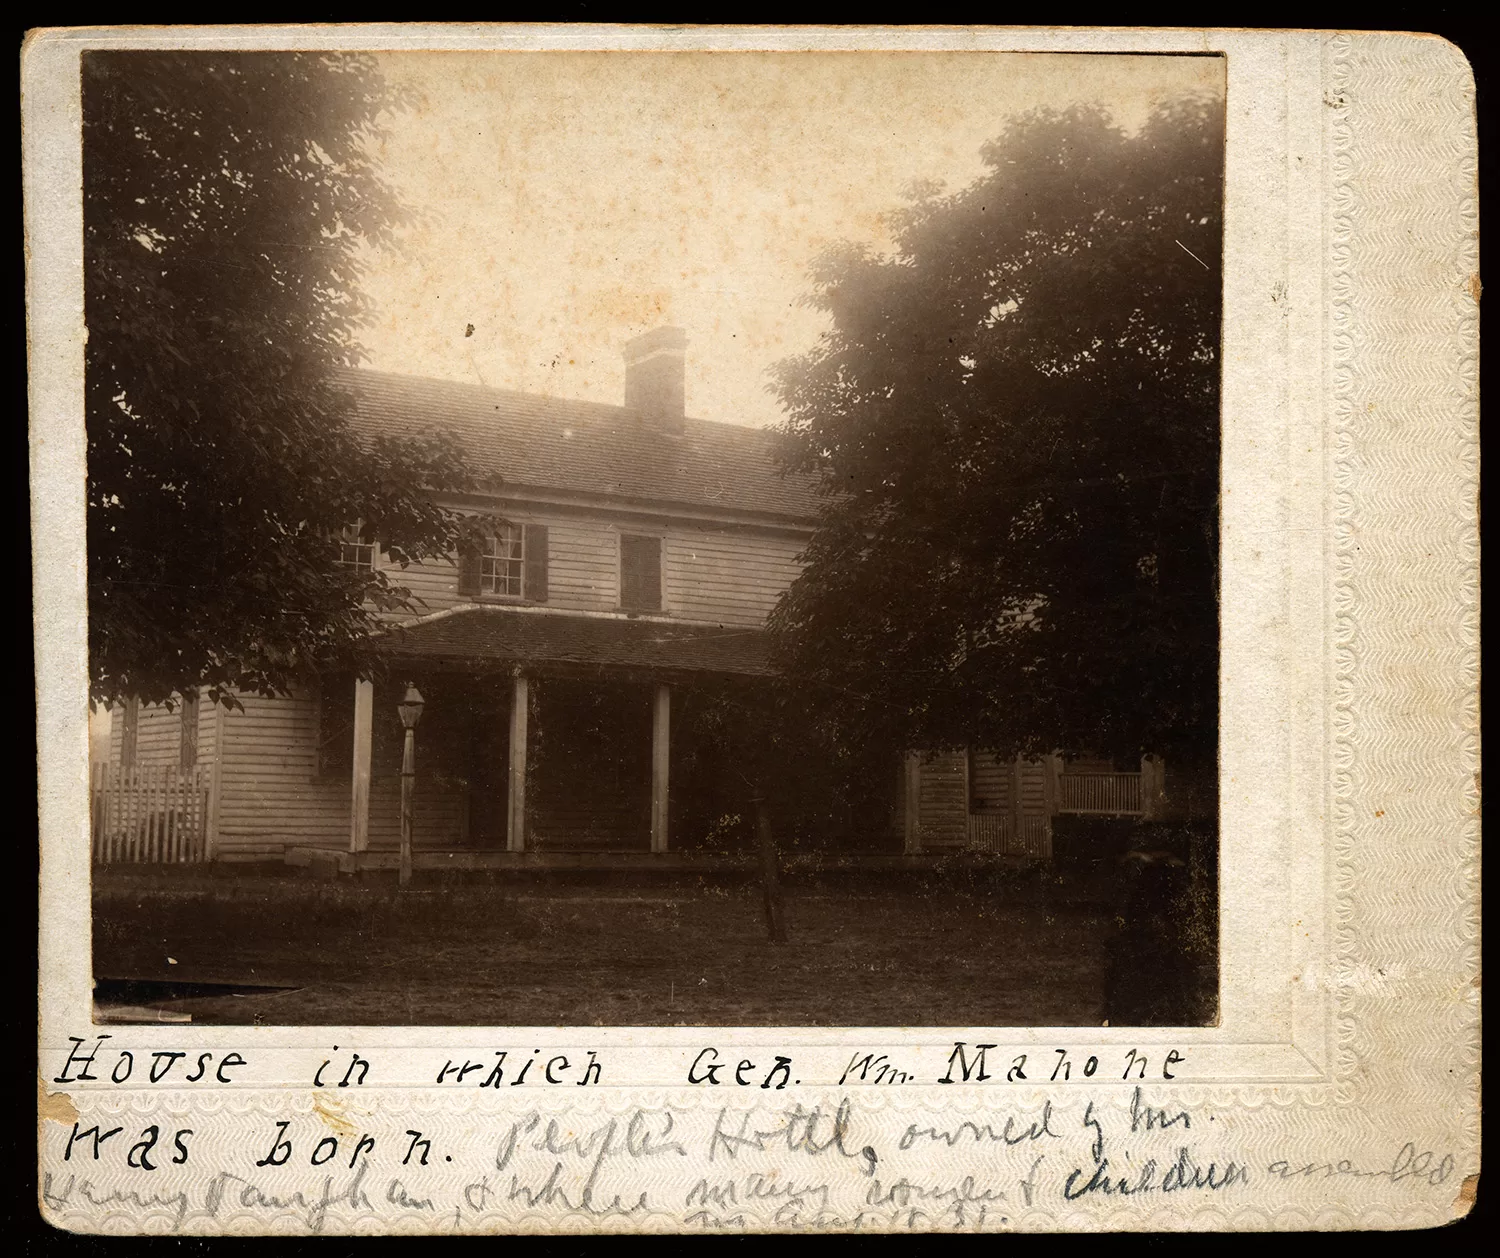 House in which Gen. Wm. Mahone
was born. People's Hotel, owned by Mrs.
Henry Vaughan, & where many women & children assembled
in Aug. 1831.